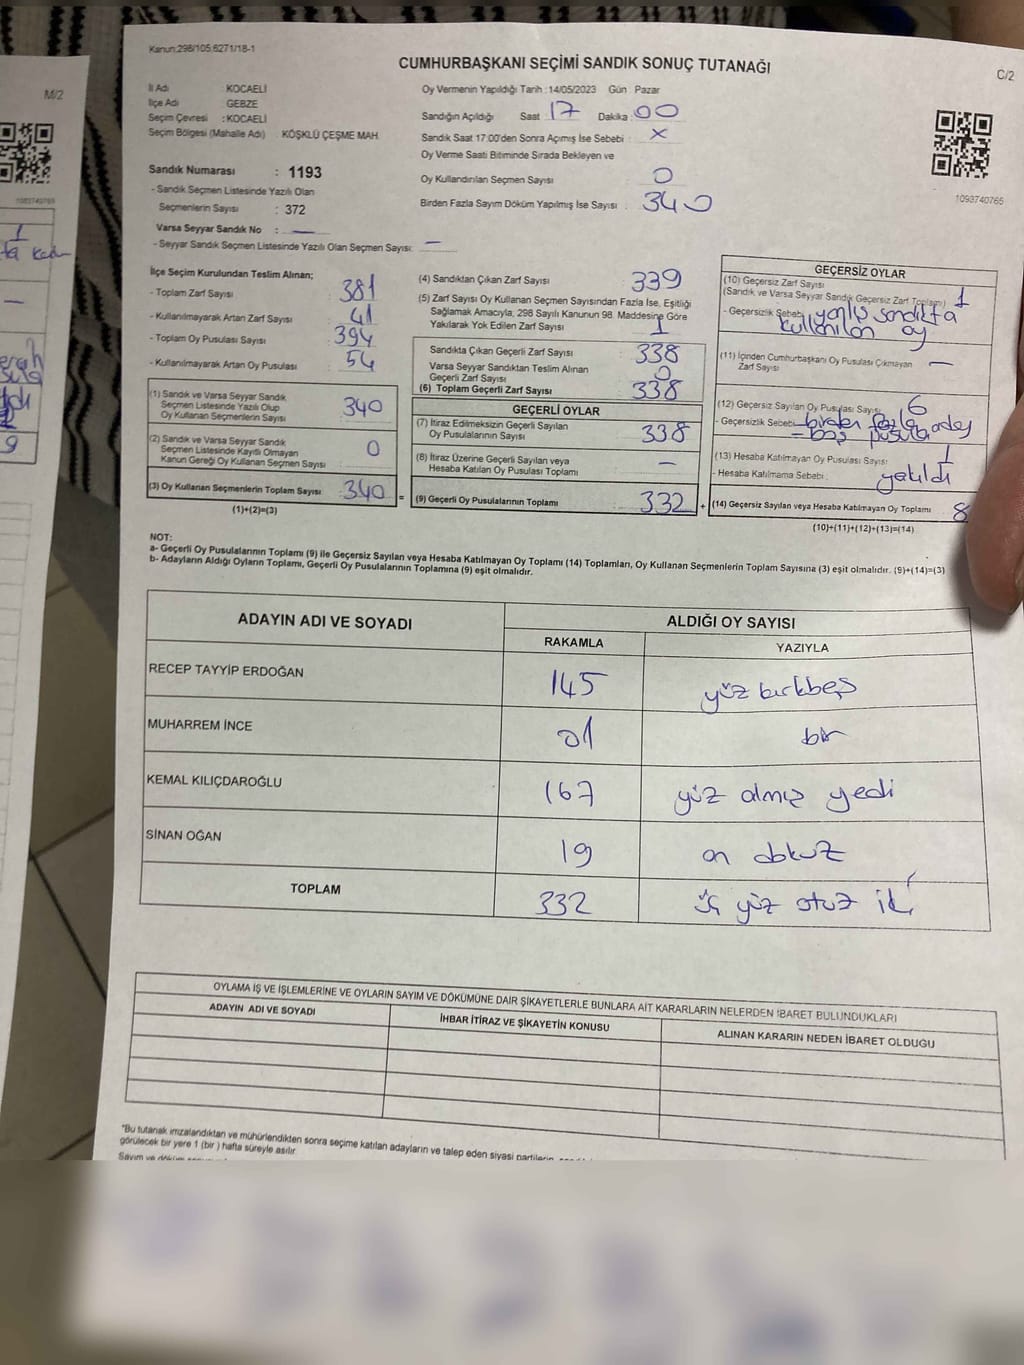 Kanun:298/105,6271/18-1
CUMHURBAŞKANI SEÇİMİ SANDIK SONUÇ TUTANAĞI
C/2
M/2
İl Adı KOCAELİ
İlçe Adı GEBZE
Seçim Çevresi : KOCAELİ
Seçim Bölgesi (Mahalle Adı) KÖŞKLÜ ÇEŞME MAH.
Sandık Numarası : 1193
- Sandık Seçmen Listesinde Yazılı Olan
Seçmenlerin Sayısı : 372
Varsa Seyyar Sandık No : —
- Seyyar Sandık Seçmen Listesinde Yazılı Olan Seçmen Sayısı: —
Oy Vermenin Yapıldığı Tarih :14/05/2023 Gün Pazar
Sandığın Açıldığı Saat 17 Dakika :00
Sandık Saat 17:00'den Sonra Açımış İse Sebebi : X
Oy Verme Saati Bitiminde Sırada Bekleyen ve
Oy Kullandırılan Seçmen Sayısı 0
Birden Fazla Sayım Döküm Yapılmış İse Sayısı : 340
1093740765
1093740765
İlçe Seçim Kurulundan Teslim Alınan;
- Toplam Zarf Sayısı 381
- Kullanılmayarak Artan Zarf Sayısı : 41
- Toplam Oy Pusulası Sayısı : 394
- Kullanılmayarak Artan Oy Pusulası : 54
(1) Sandık ve Varsa Seyyar Sandık
Seçmen Listesinde Yazılı Olup
Oy Kullanan Seçmenlerin Sayısı 340
(2) Sandık ve Varsa Seyyar Sandık
Seçmen Listesinde Kayıtlı Olmayan
Kanun Gereği Oy Kullanan Seçmen Sayısı 0
(3) Oy Kullanan Seçmenlerin Toplam Sayısı : 340 =
(1)+(2)=(3)
(4) Sandıktan Çıkan Zarf Sayısı 339
(5) Zarf Sayısı Oy Kullanan Seçmen Sayısından Fazla İse, Eşitliği
Sağlamak Amacıyla, 298 Sayılı Kanunun 98. Maddesine Göre
Yakılarak Yok Edilen Zarf Sayısı 1
Sandıkta Çıkan Geçerli Zarf Sayısı 338
Varsa Seyyar Sandıktan Teslim Alınan
Geçerli Zarf Sayısı 0
(6) Toplam Geçerli Zarf Sayısı 338
GEÇERLİ OYLAR
(7) İtiraz Edilmeksizin Geçerli Sayılan
Oy Pusulalarının Sayısı 338
(8) İtiraz Üzerine Geçerli Sayılan veya
Hesaba Katılan Oy Pusulası Toplamı —
(9) Geçerli Oy Pusulalarının Toplamı 332 +
GEÇERSİZ OYLAR
(10) Geçersiz Zarf Sayısı
(Sandık ve Varsa Seyyar Sandık Geçersiz Zarf Toplamı) 1
- Geçersizlik Sebebi yanlış sandıkta
kullanılan oy
(11) İçinden Cumhurbaşkanı Oy Pusulası Çıkmayan
Zarf Sayısı —
(12) Geçersiz Sayılan Oy Pusulası Sayısı 6
- Geçersizlik Sebebi birden fazla aday
boş pusula
(13) Hesaba Katılmayan Oy Pusulası Sayısı 1
- Hesaba Katılmama Sebebi : yakıldı
(14) Geçersiz Sayılan veya Hesaba Katılmayan Oy Toplamı 8
(10)+(11)+(12)+(13)=(14)
NOT:
a- Geçerli Oy Pusulalarının Toplamı (9) ile Geçersiz Sayılan veya Hesaba Katılmayan Oy Toplamı (14) Toplamları, Oy Kullanan Seçmenlerin Toplam Sayısına (3) eşit olmalıdır. (9)+(14)=(3)
b- Adayların Aldığı Oyların Toplamı, Geçerli Oy Pusulalarının Toplamına (9) eşit olmalıdır.
ADAYIN ADI VE SOYADI ALDIĞI OY SAYISI
RAKAMLA YAZIYLA
RECEP TAYYİP ERDOĞAN 145 yüz kırkbeş
MUHARREM İNCE 01 bir
KEMAL KILIÇDAROĞLU 167 yüz atmış yedi
SİNAN OĞAN 19 on dokuz
TOPLAM 332 üç yüz otuz iki
OYLAMA İŞ VE İŞLEMLERİNE VE OYLARIN SAYIM VE DÖKÜMÜNE DAİR ŞİKAYETLERLE BUNLARA AİT KARARLARIN NELERDEN İBARET BULUNDUKLARI
ADAYIN ADI VE SOYADI İHBAR İTİRAZ VE ŞİKAYETİN KONUSU ALINAN KARARIN NEDEN İBARET OLDUĞU
*Bu tutanak imzalandıktan ve mühürlendikten sonra seçime katılan adayların ve talep eden siyasi partilerin
görülecek bir yere 1 (bir ) hafta süreyle asılır.
Sayım ve döküm